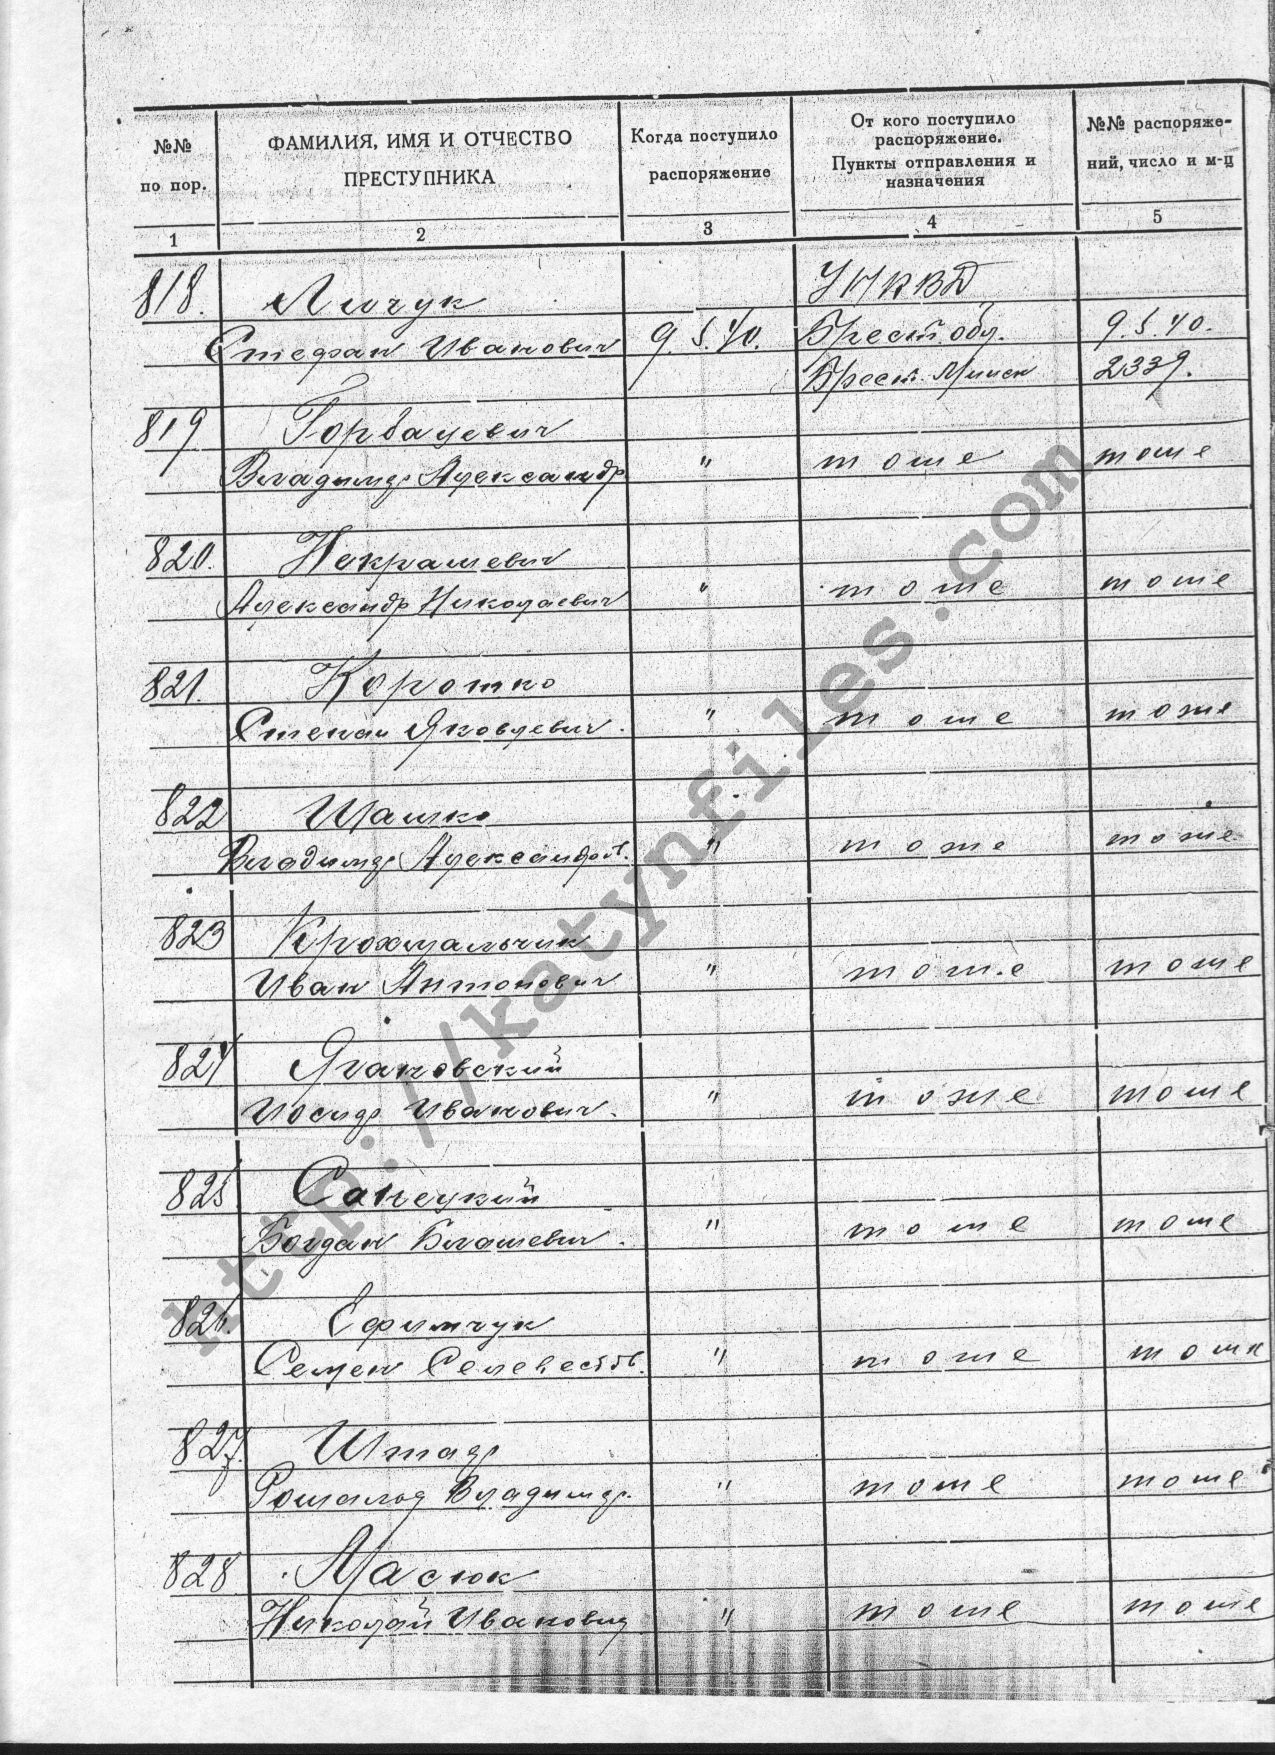 №№
по пор.
ФАМИЛИЯ, ИМЯ И ОТЧЕСТВО
ПРЕСТУПНИКА
Когда поступило
распоряжение
От кого поступило
распоряжение.
Пункты отправления и
назначения
№№ распоряже-
ний, число и м-ц
1 2 3 4 5
818. Личук УНКВД
Стефан Иванович 9.5.40. Брест. обл. 9.5.40.
Брест. Минск 2339.
819 Горбацевич
Владимир Александр. " тоже тоже
820. Некрашевич
Александр Николаевич " тоже тоже
821. Коротко
Степан Яковлевич. " тоже тоже
822 Шашко
Владимир Александров. " тоже тоже
823 Крохмальчик
Иван Антонович " тоже тоже
824 Ягановский
Иосиф Иванович. " тоже тоже
825 Санецкий
Богдан " тоже тоже
826. Ефимчук
Семен " тоже тоже
827. Штадр
Владимир. " тоже тоже
828 Масюк
Николай Иванович " тоже тоже
http://katynfiles.com